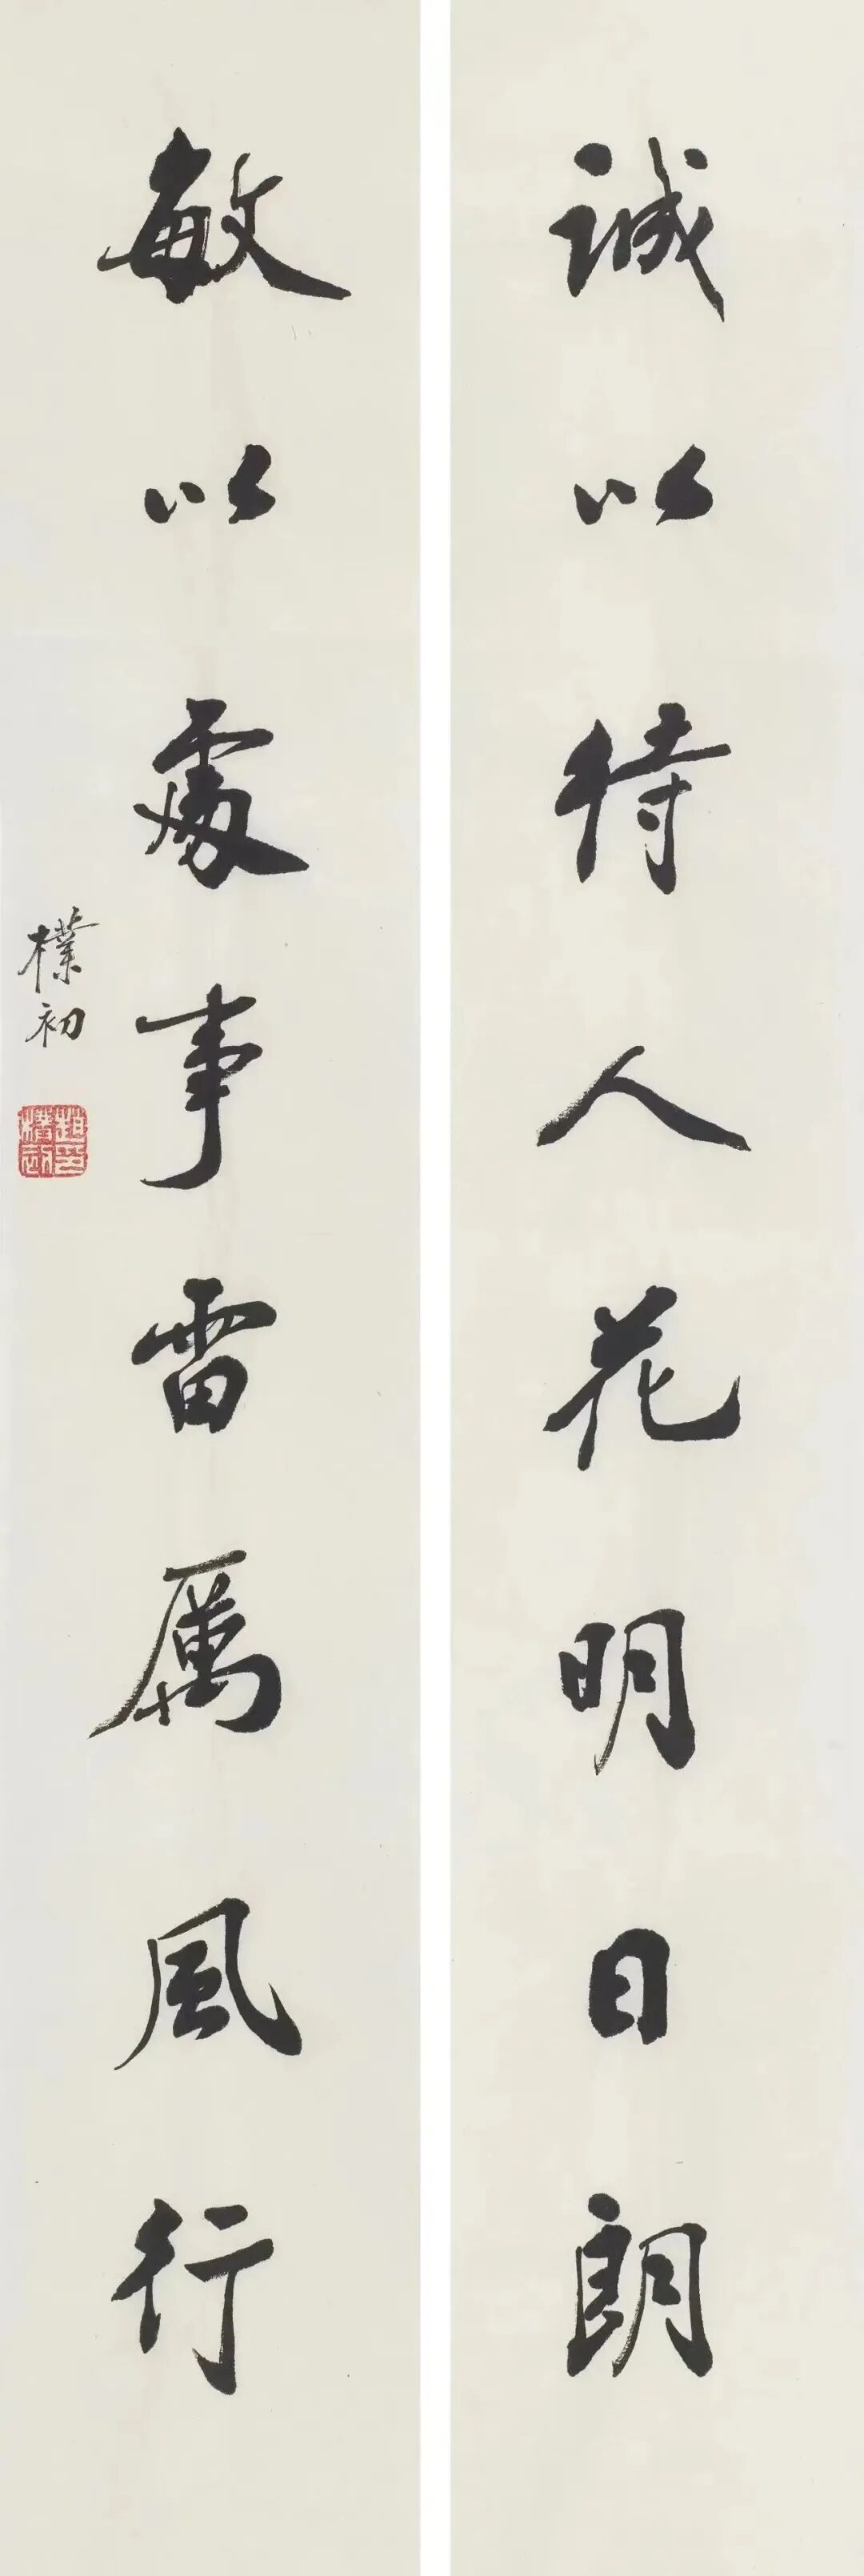 誠以待人花明日朗
敏以處事雷厲風行
樸初
趙樸初印